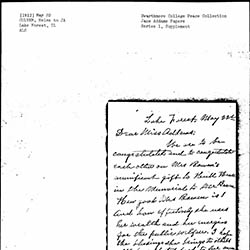 [1912] May 22
CULVER, Helen to JA
Lake Forest, IL
ALS
Swarthmore College Peace Collection
Jane Addams Papers
Series 1, Supplement
Lake Forest, May 22
Dear Miss Addams:
We are to be
congratulated and to congratulate
each other on Mrs Bowen's
munificent gift to Hull House
in the Memorial to Mr Bowen.
How good Mrs Bowen is!
And how effectively she uses
her wealth and her energies
for the public welfare. I hope
the blessings she brings to others